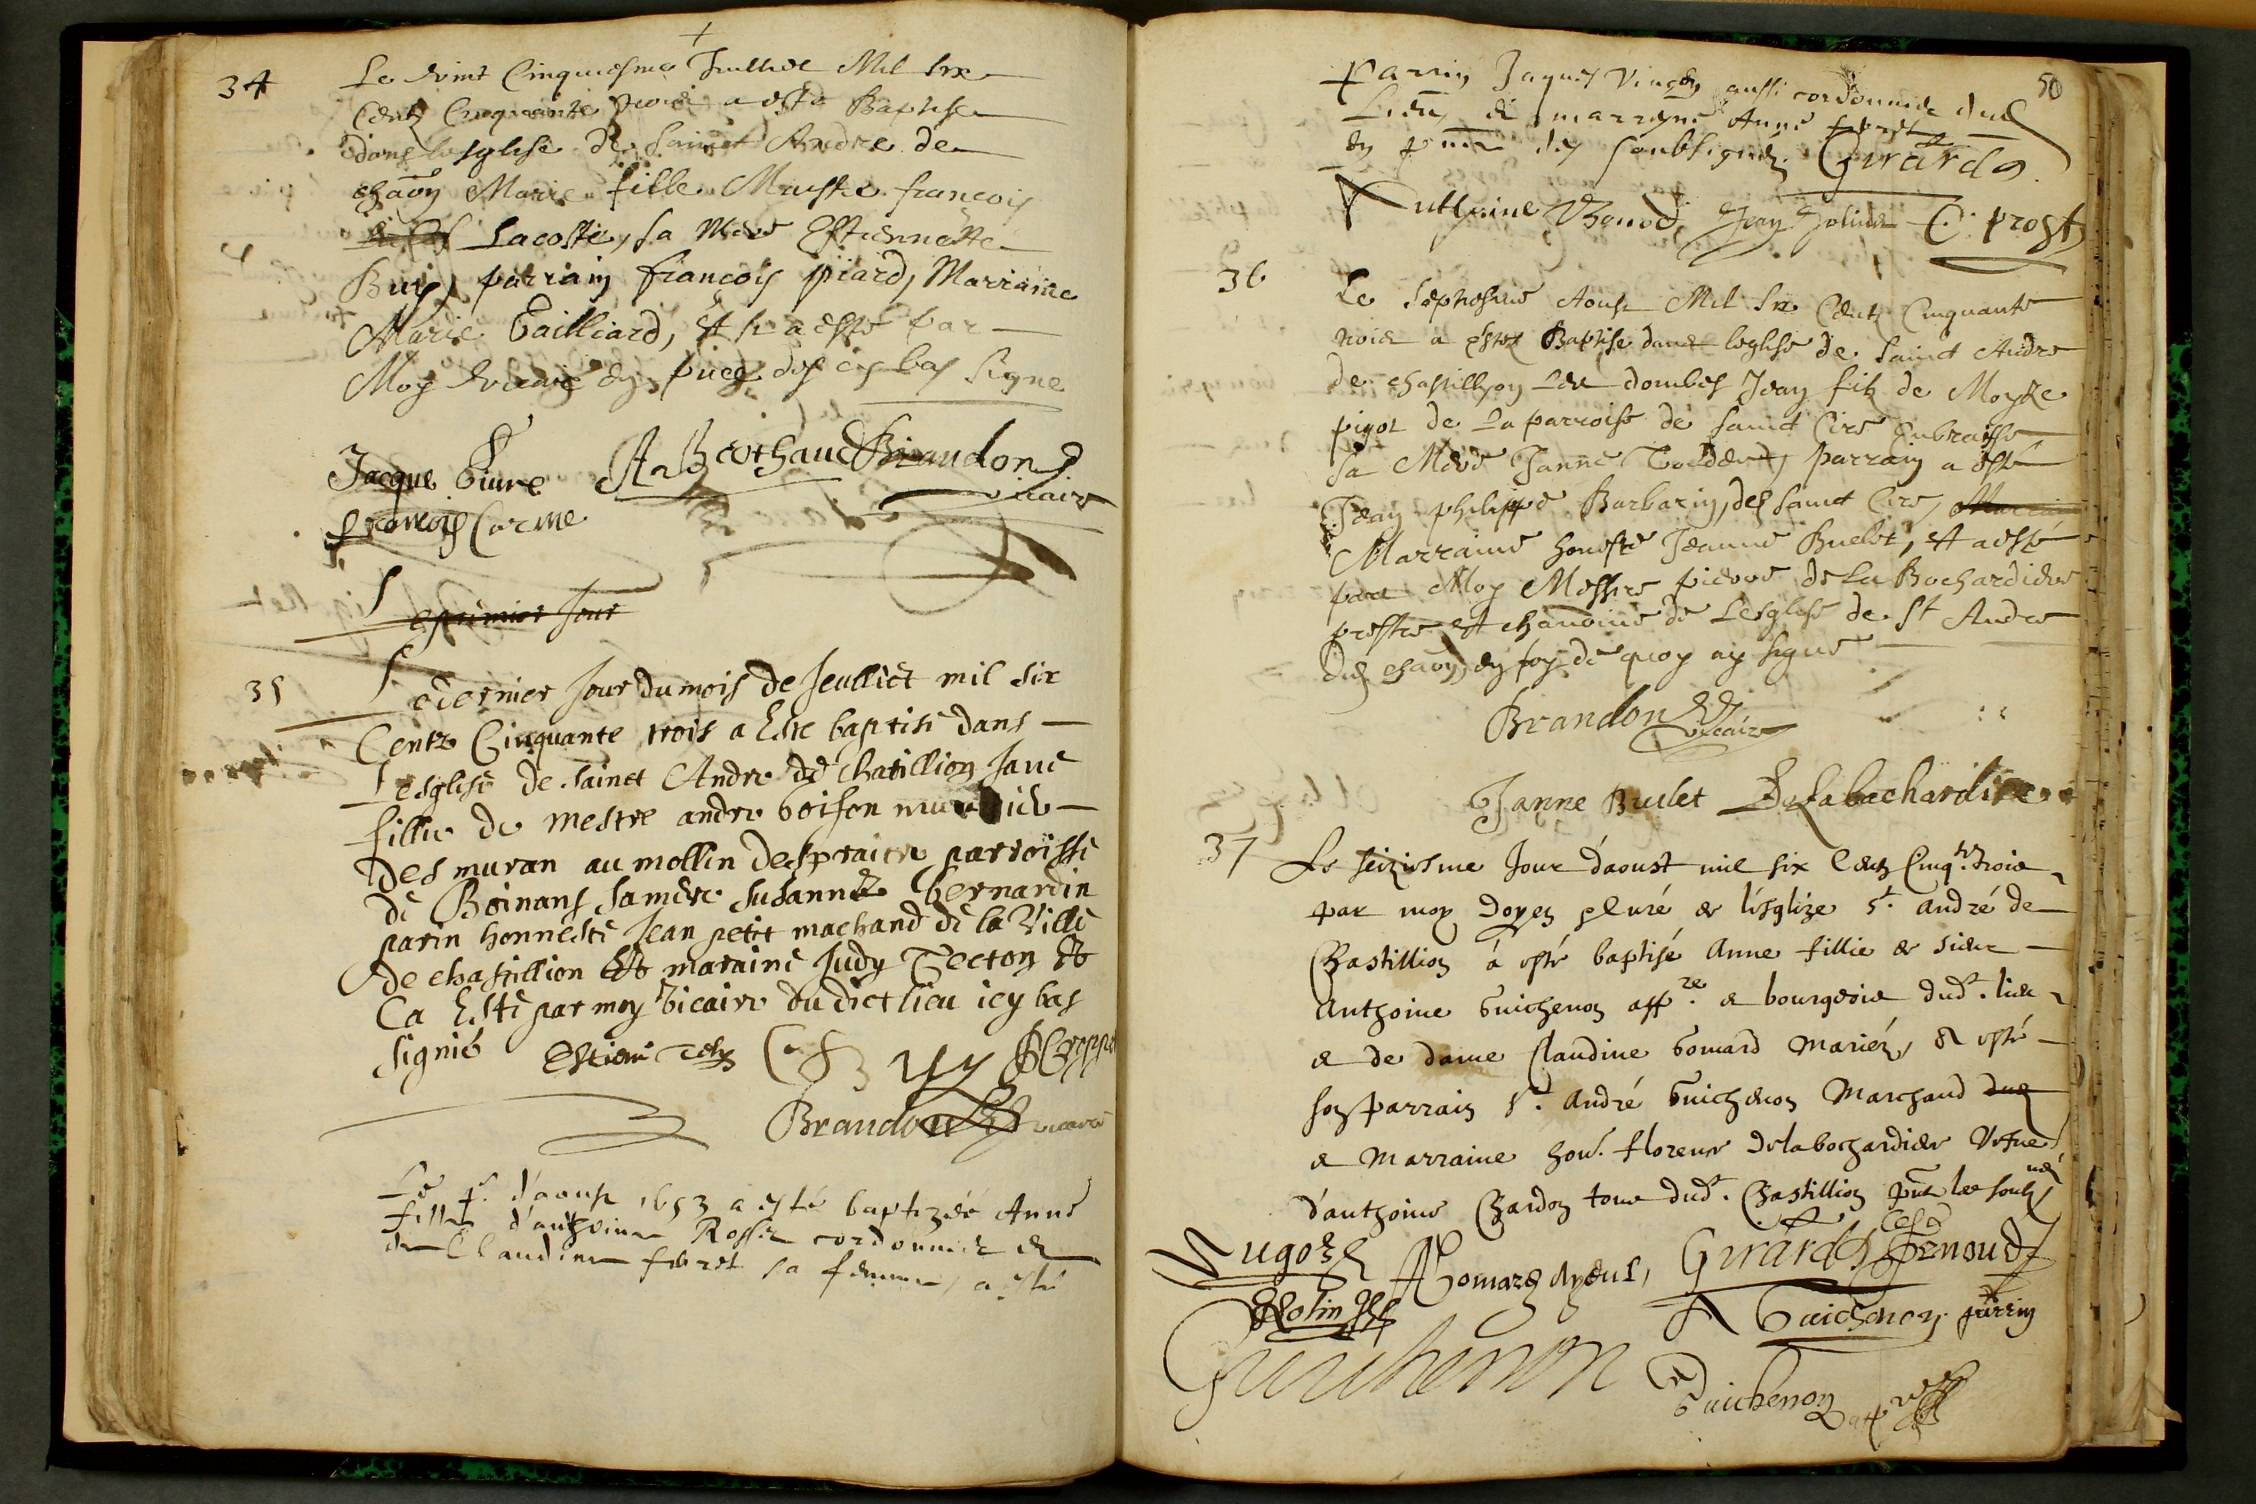 34
Le vint Cinquiesme Juillet Mil six
Centz Cinquante trois a esté Baptise
dans lesglise de Sainct Andre de
chaon Marie fille Maistre francois
Lacoste, sa Mere Estiennette
Buy, parrain francois piard, Marraine
Marie Gailliard, et a esté par
Moy vicaire en pnce des cy bas signe
Jacque Guire A Berthaud Brandon vicaire
francois Carme
Le premier Jour
35
Le dernier Jour du mois de Jeulliet mil six
Centz Cinquante trois a Este baptisé dans
Lesglise de sainct Andre de chatillion Jane
fillie de mestre andre boison
des muran au mollin desprairie parroisse
de Boinans sa mere susanne bernardin
parin honneste Jean petit machand de la Ville
de chastillion Et maraine Judy Tecton Et
Ca Esté par moy vicaire du dict lieu icy bas
signié
Brandon vicaire
Le pr. d'aoust 1653 a esté baptizéé Anne
fille d'anthoine Rossit cordonnier et
de Claudine febret sa femme, a esté
50
parrin Jaques Vingon aussi cordonnier dud
Lieu, et marreyne Anne febret
en pnce des soubsignez. Girardo
Anthoine Benod, Jean Jolivet C. prost
36
Le septiesme Aoust Mil Six Centz Cinquante
trois a estez Baptise dans leglise de Sainct Andre
de chastillion Les dombes Jean filz de Moyze
pigot de La parroise de sainct Cire
sa Mere Janne parrain a esté
Jean philippe Barbarin, de sainct Cire, Marrain
Marraine honeste Jeanne Buelet, et a esté
par Moy Messire pierre de La Bochardiere
prestre et chanoine de Lesglise de St Andre
dud chaon, en foy de quoy ay signé
Brandon vicaire
Janne Buelet Delabachardiere
37
Le seiziesme Jour d'aoust mil six Centz Cinqte. trois
par moy Doyen & Curé de l'esglize St. André de
Chastillion à esté baptisé Anne fillie de sieur
Anthoine Guichenon affre. & bourgeois dudt. lieu
& de dame Claudine Gomard mariéz, & esté
son parrain Sr. André Guichenon Marchand dud
& Marraine hon. florence Delabochardiere Vefue
d'anthoine Chardon dudt. Chastillion pnt les soubsnés
Nugoz A Gomard ayeul, Girard Arnoud
Rolin A Guichenon parrin
Guichenon
Guichenon